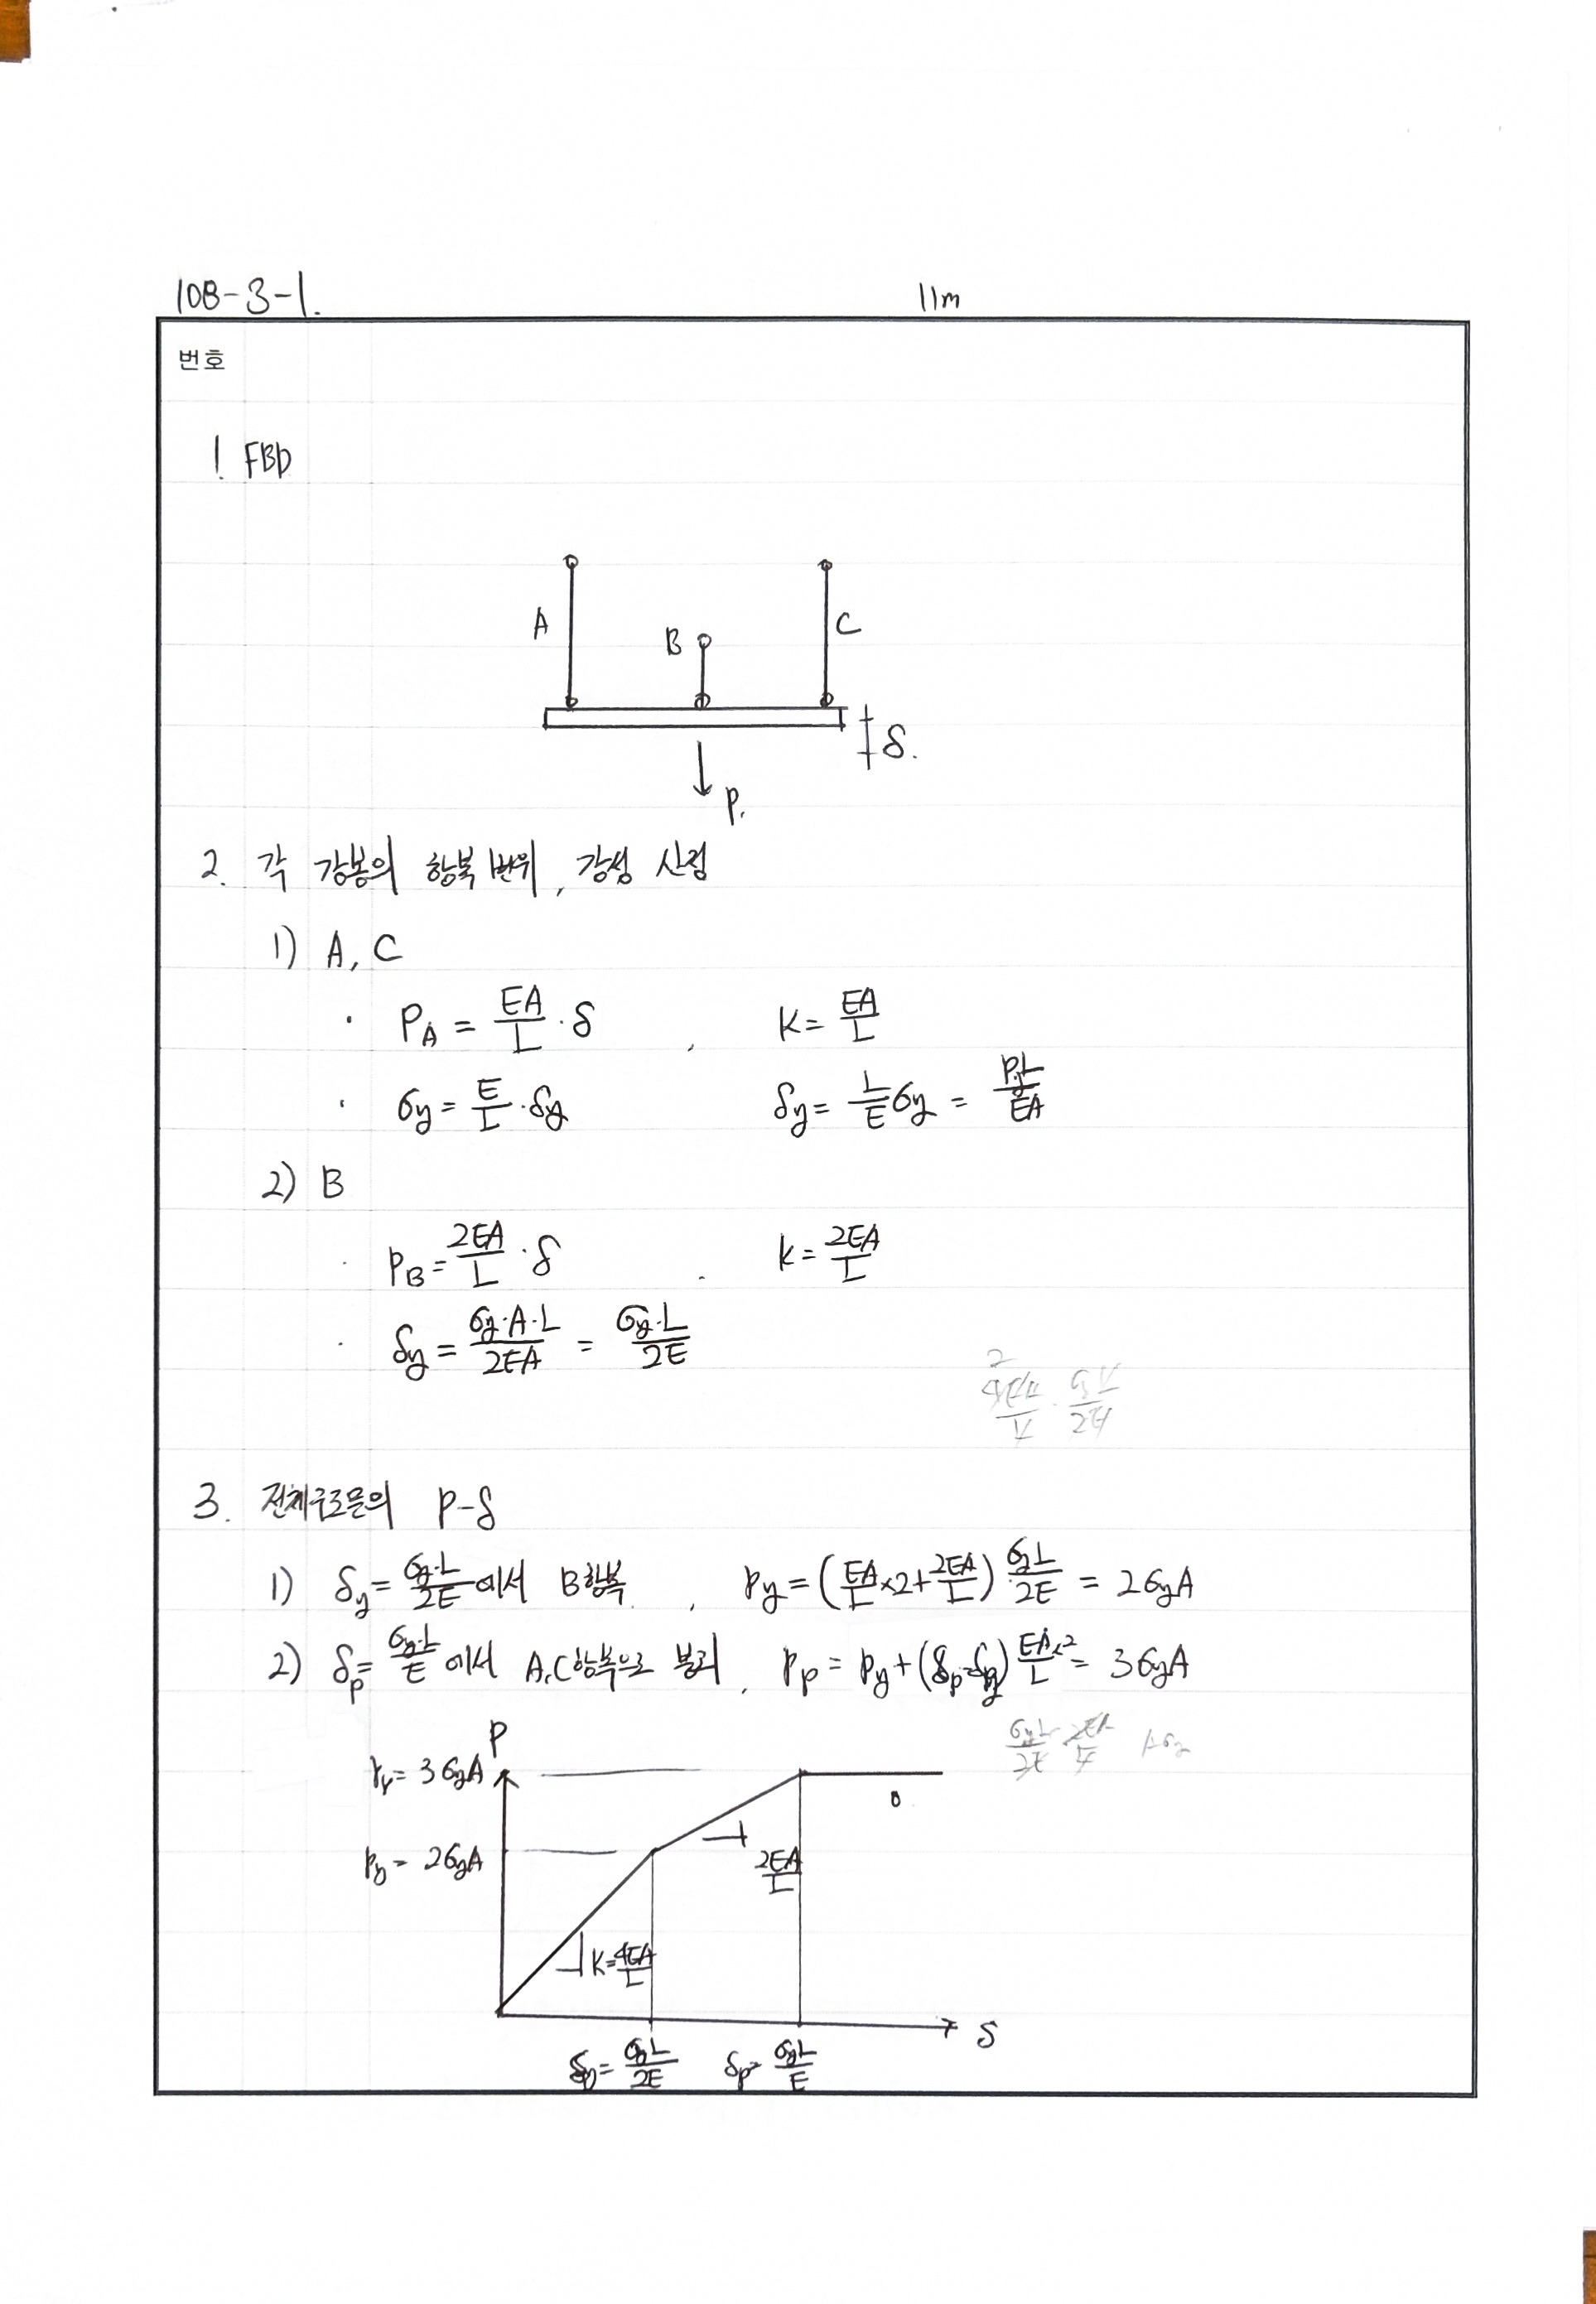 108-3-1. 11m
번호
1 FBD
A B C
δ.
P.
2. 각 강봉의 항복변위, 강성 산정
1) A, C
· P_A = EA/L · δ , K = EA/L
· σy = E/L · δy δy = L/E σy = PyL/EA
2) B
· P_B = 2EA/L · δ . K = 2EA/L
· δy = σy·A·L/2EA = σy·L/2E
3. 전체구조물의 P-δ
1) δy = σy·L/2E 에서 B항복 , Py = (EA/L ×2 + 2EA/L) σyL/2E = 2σyA
2) δp = σy·L/E 에서 A,C항복으로 붕괴 , Pp = Py + (δp-δy) EA/L ×2 = 3σyA
P
= 3σyA
0
Py = 2σyA
2EA/L
K = 4EA/L
δ
δy = σyL/2E δp = σyL/E